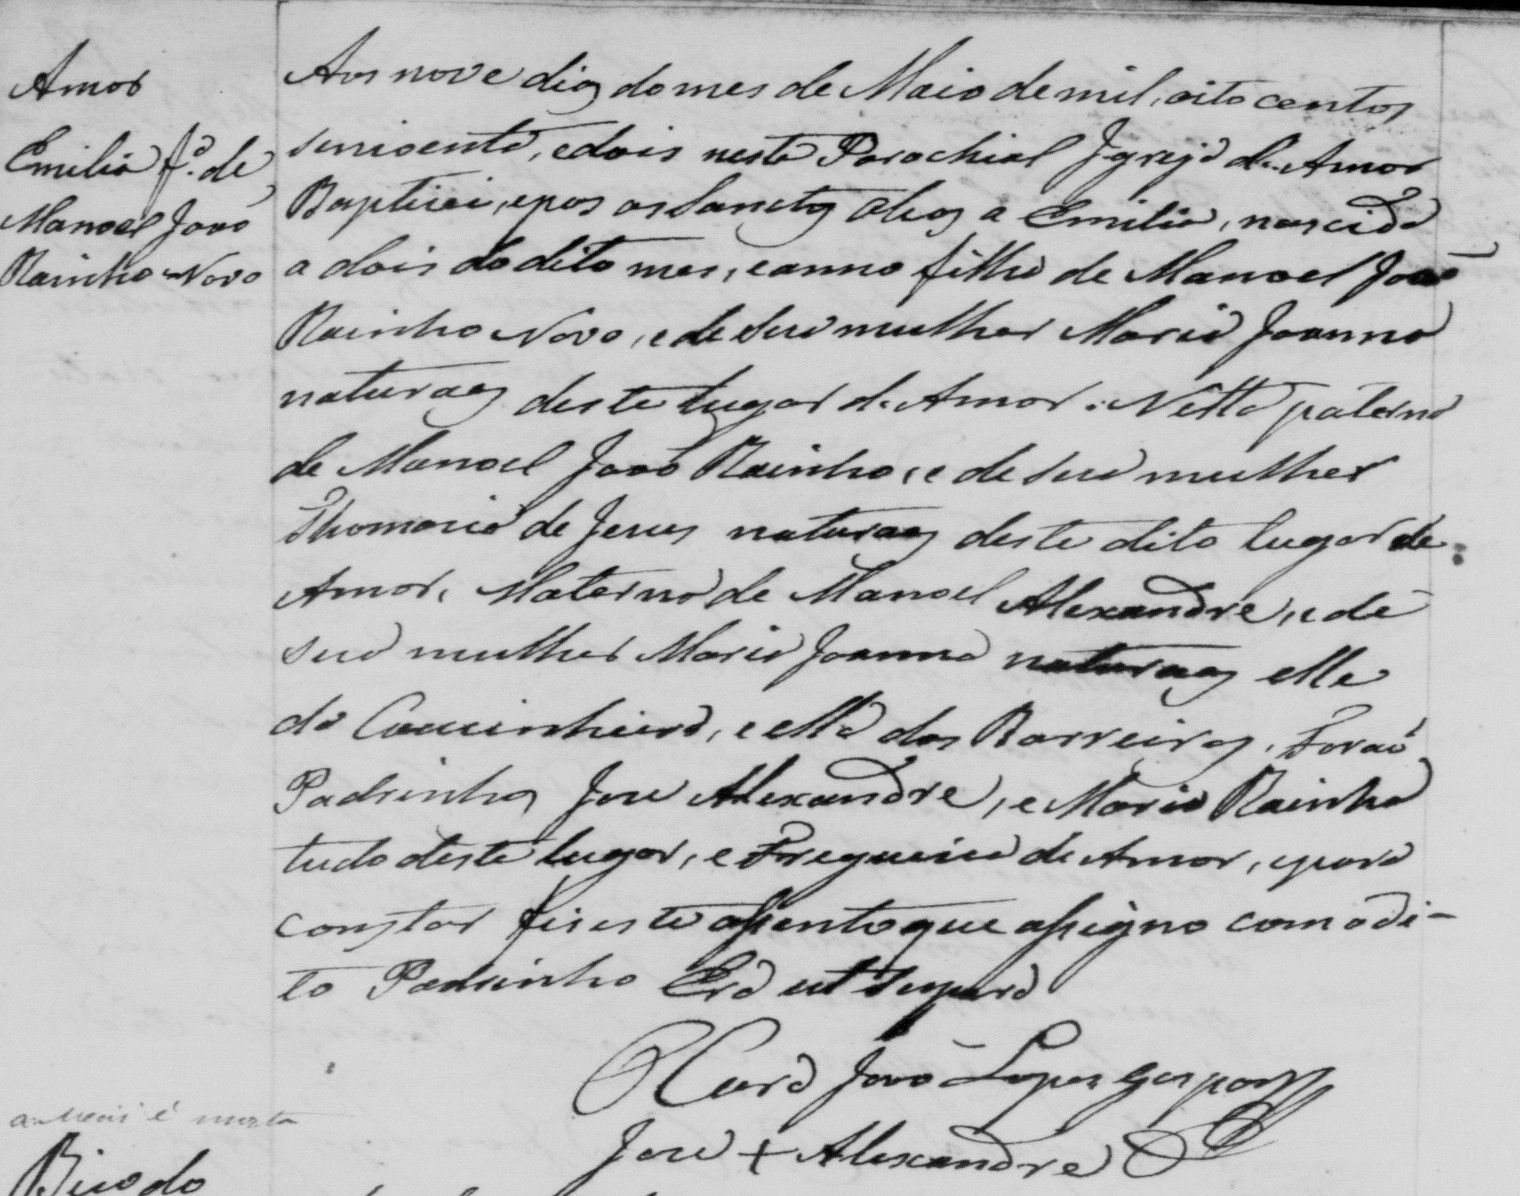 Amor
Emilia fa. de
Manoel João
Rainho Novo
Aos nove dias do mes de Maio de mil, oito centos
sincoenta, e dois nesta Parochial Igreja de Amor
Baptizei, e pos os Sanctos Oleos a Emilia, nascida
a dois do dito mes, e anno filha de Manoel João
Rainho Novo, e de sua mulher Maria Joanna
naturaes deste lugar de Amor. Netta paterna
de Manoel João Rainho, e de sua mulher
Thomasia de Jesus naturaes deste dito lugar de
Amor, Materna de Manoel Alexandre, e de
sua mulher Maria Joanna naturaes elle
da e ella dos Barreiros, Forão
Padrinhos Jose Alexandre, e Maria Rainha
tudo deste lugar, e Freguezia de Amor, e para
constar fis este assento que assigno com o di-
to Padrinho Era ut supra
O Cura João Lopes Gaspar
Jose + Alexandre
a é morta